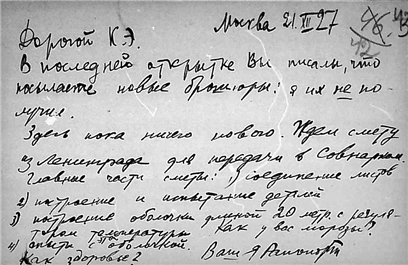 Москва 21.III 27
42
Дорогой К.Э.
В последней открытке Вы писали, что
посылаете новые брошюры: я их не по-
лучил.
Здесь пока ничего нового. Ждем смету
из Ленинграда для передачи в Совнарком.
Главные части сметы: 1) соединение листов
2) построение и испытание деталей
3) построение оболочки длиной 20 метр. с регуля-
тором температуры
4) опыты с этой оболочкой. Как у вас морозы?
Как здоровье? Ваш Я Рапопорт